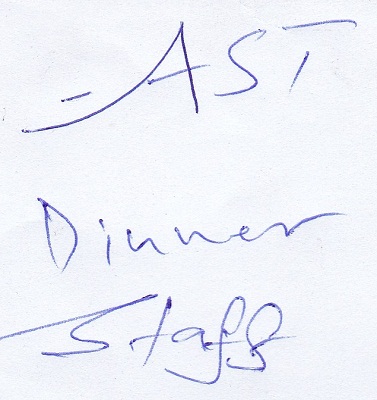 EAST
Dinner
Staff